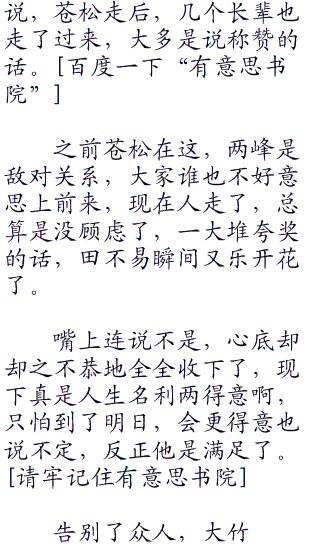 说，苍松走后，几个长辈也
走了过来，大多是说称赞的
话。[百度一下“有意思书
院”]
之前苍松在这，两峰是
敌对关系，大家谁也不好意
思上前来，现在人走了，总
算是没顾虑了，一大堆夸奖
的话，田不易瞬间又乐开花
了。
嘴上连说不是，心底却
却之不恭地全全收下了，现
下真是人生名利两得意啊，
只怕到了明日，会更得意也
说不定，反正他是满足了。
[请牢记住有意思书院]
告别了众人，大竹